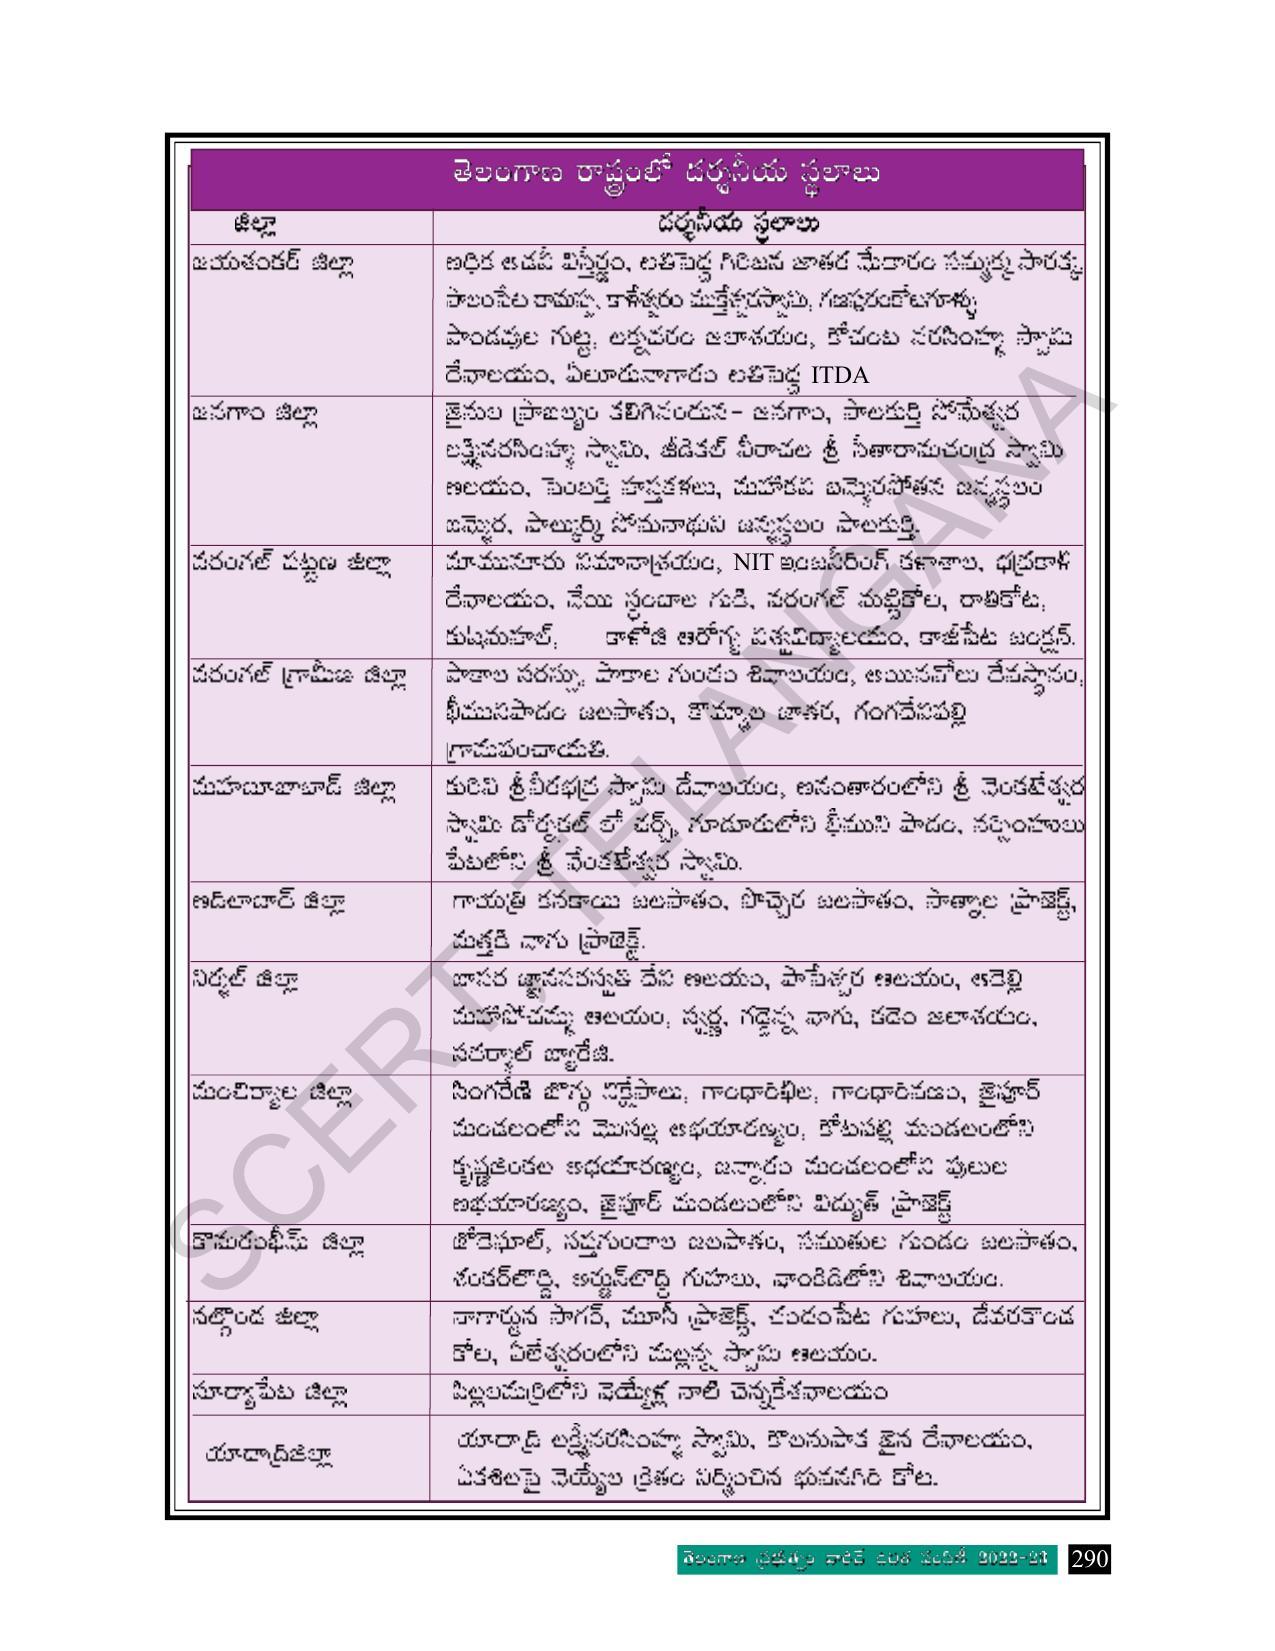 తెలంగాణ రాష్ట్రంలో దర్శనీయ స్థలాలు
జిల్లా దర్శనీయ స్థలాలు
జయశంకర్ జిల్లా అధిక అడవి విస్తీర్ణం, అతిపెద్ద గిరిజన జాతర మేడారం సమ్మక్క సారక్క,
పాలంపేట రామప్ప, కాళేశ్వరం ముక్తేశ్వరస్వామి, గణపురంకోటగుళ్ళు
పాండవుల గుట్ట, లక్నవరం జలాశయం, కోటంచ నరసింహ స్వామి
దేవాలయం, ఏటూరునాగారం అతిపెద్ద ITDA
జనగాం జిల్లా జైనుల ప్రాబల్యం కలిగినందున- జనగాం, పాలకుర్తి సోమేశ్వర
లక్ష్మినరసింహ స్వామి, జీడికల్ వీరాచల శ్రీ సీతారామచంద్ర స్వామి
ఆలయం, పెంబర్తి హస్తకళలు, మహాకవి బమ్మెరపోతన జన్మస్థలం
బమ్మెర, పాల్కుర్కి సోమనాథుని జన్మస్థలం పాలకుర్తి.
వరంగల్ పట్టణ జిల్లా మామునూరు విమానాశ్రయం, NIT ఇంజనీరింగ్ కళాశాల, భద్రకాళి
దేవాలయం, వేయి స్థంబాల గుడి, వరంగల్ మట్టికోట, రాతికోట,
కుషమహల్, కాళోజి ఆరోగ్య విశ్వవిద్యాలయం, కాజీపేట జంక్షన్.
వరంగల్ గ్రామీణ జిల్లా పాకాల సరస్సు, పాకాల గుండం శివాలయం, అయినవోలు దేవస్థానం,
భీమునిపాదం జలపాతం, కొమ్మాల జాతర, గంగదేవిపల్లి
గ్రామపంచాయతి.
మహబూబాబాద్ జిల్లా కురవి శ్రీవీరభద్ర స్వామి దేవాలయం, అనంతారంలోని శ్రీ వెంకటేశ్వర
స్వామి డోర్నకల్ లో చర్చ్, గూడూరులోని భీముని పాదం, నర్సింహులు
పేటలోని శ్రీ వేంకటేశ్వర స్వామి.
ఆదిలాబాద్ జిల్లా గాయత్రి కనకాయి జలపాతం, పొచ్చెర జలపాతం, సాత్నాల ప్రాజెక్ట్,
మత్తడి వాగు ప్రాజెక్ట్.
నిర్మల్ జిల్లా బాసర జ్ఞానసరస్వతి దేవి ఆలయం, పాపేశ్వర ఆలయం, ఆడెల్లి
మహాపోచమ్మ ఆలయం, స్వర్ణ, గడ్డెన్న వాగు, కడెం జలాశయం,
సదర్మాట్ బ్యారేజి.
మంచిర్యాల జిల్లా సింగరేణి బొగ్గు నిక్షేపాలు, గాంధారిఖిల, గాంధారివనం, జైపూర్
మండలంలోని మొసళ్ల అభయారణ్యం, కోటపల్లి మండలంలోని
కృష్ణజింకల అభయారణ్యం, జన్నారం మండలంలోని పులుల
అభయారణ్యం, జైపూర్ మండలంలోని విద్యుత్ ప్రాజెక్ట్
కొమురంభీమ్ జిల్లా జోడెఘాట్, సప్తగుండాల జలపాతం, సమితుల గుండం జలపాతం,
శంకర్‌లొద్ది, అర్జున్‌లొద్ది గుహలు, వాంకిడిలోని శివాలయం.
నల్గొండ జిల్లా నాగార్జున సాగర్, మూసీ ప్రాజెక్ట్, చందంపేట గుహలు, దేవరకొండ
కోట, ఏలేశ్వరంలోని మల్లన్న స్వామి ఆలయం.
సూర్యాపేట జిల్లా పిల్లలమర్రిలోని వెయ్యేళ్ల నాటి చెన్నకేశవాలయం
యాదాద్రిజిల్లా యాదాద్రి లక్ష్మీనరసింహ స్వామి, కొలనుపాక జైన దేవాలయం,
ఏకశిలపై వెయ్యేల క్రితం నిర్మించిన భువనగిరి కోట.
SCERT, TELANGANA
తెలంగాణ ప్రభుత్వం వారిచే ఉచిత పంపిణీ 2022-23 290